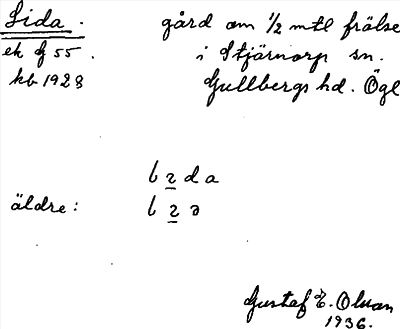 Lida. gård om 1/2 mtl frälse
ek bf 55. i Stjärnorp sn.
kb 1928 Gullbergs hd. Ögl
da
äldre:
Gustaf E. Olsson
1936.